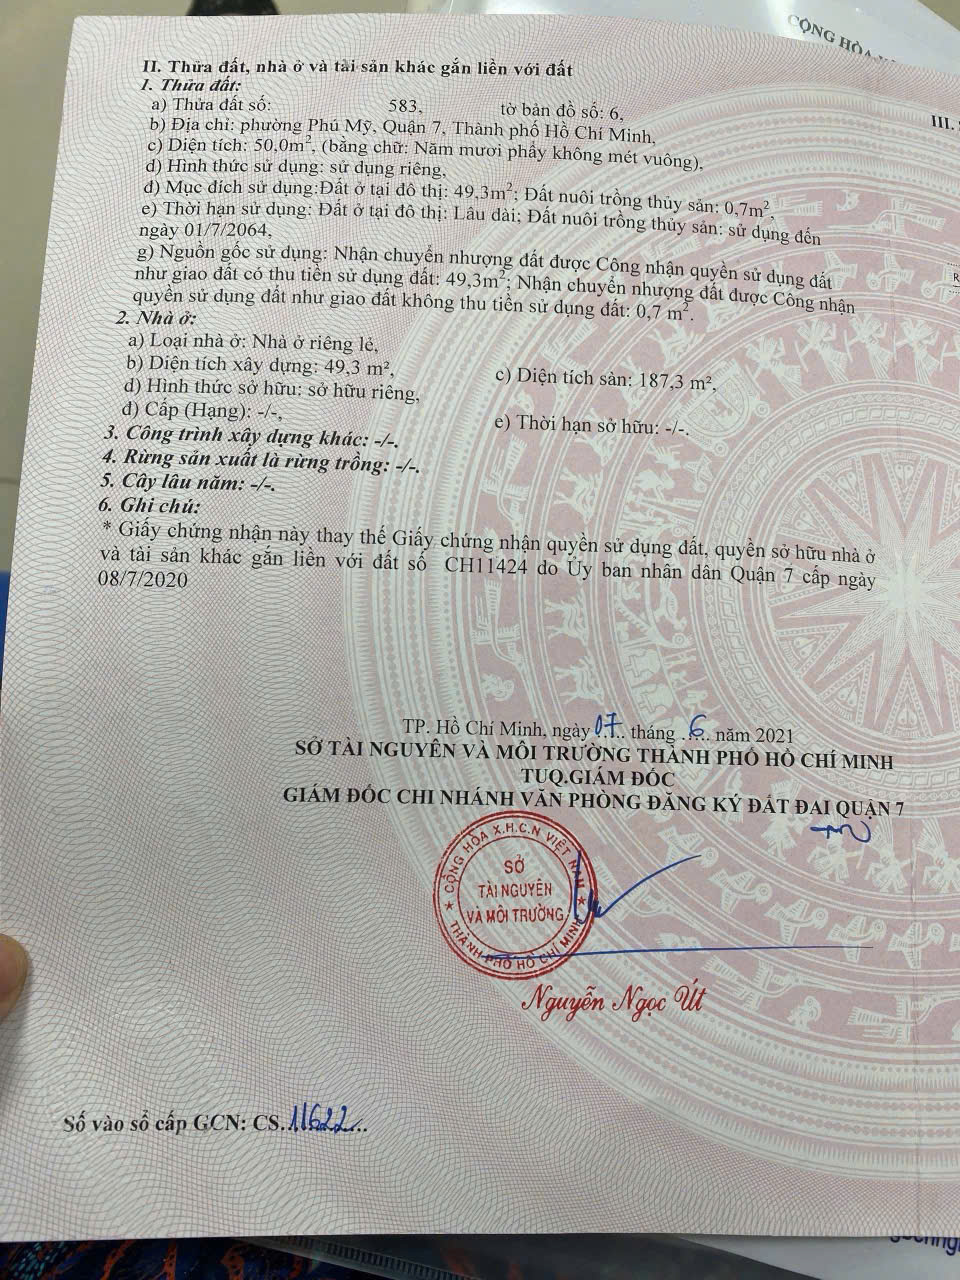 CỘNG HÒA
II. Thửa đất, nhà ở và tài sản khác gắn liền với đất
III.
1. Thửa đất:
a) Thửa đất số: 583, tờ bản đồ số: 6,
b) Địa chỉ: phường Phú Mỹ, Quận 7, Thành phố Hồ Chí Minh,
c) Diện tích: 50,0m², (bằng chữ: Năm mươi phẩy không mét vuông),
d) Hình thức sử dụng: sử dụng riêng,
đ) Mục đích sử dụng:Đất ở tại đô thị: 49,3m²; Đất nuôi trồng thủy sản: 0,7m²,
e) Thời hạn sử dụng: Đất ở tại đô thị: Lâu dài; Đất nuôi trồng thủy sản: sử dụng đến
ngày 01/7/2064,
g) Nguồn gốc sử dụng: Nhận chuyển nhượng đất được Công nhận quyền sử dụng đất
như giao đất có thu tiền sử dụng đất: 49,3m²; Nhận chuyển nhượng đất được Công nhận
quyền sử dụng đất như giao đất không thu tiền sử dụng đất: 0,7 m².
2. Nhà ở:
a) Loại nhà ở: Nhà ở riêng lẻ,
b) Diện tích xây dựng: 49,3 m², c) Diện tích sàn: 187,3 m²,
d) Hình thức sở hữu: sở hữu riêng,
đ) Cấp (Hạng): -/-, e) Thời hạn sở hữu: -/-.
3. Công trình xây dựng khác: -/-.
4. Rừng sản xuất là rừng trồng: -/-.
5. Cây lâu năm: -/-.
6. Ghi chú:
* Giấy chứng nhận này thay thế Giấy chứng nhận quyền sử dụng đất, quyền sở hữu nhà ở
và tài sản khác gắn liền với đất số CH11424 do Ủy ban nhân dân Quận 7 cấp ngày
08/7/2020
TP. Hồ Chí Minh, ngày 07 tháng 6 năm 2021
SỞ TÀI NGUYÊN VÀ MÔI TRƯỜNG THÀNH PHỐ HỒ CHÍ MINH
TUQ.GIÁM ĐỐC
GIÁM ĐỐC CHI NHÁNH VĂN PHÒNG ĐĂNG KÝ ĐẤT ĐAI QUẬN 7
CỘNG HÒA X.H.C.N VIỆT NAM
SỞ
TÀI NGUYÊN
VÀ MÔI TRƯỜNG
THÀNH PHỐ HỒ CHÍ MINH
Nguyễn Ngọc Út
Số vào sổ cấp GCN: CS.11622